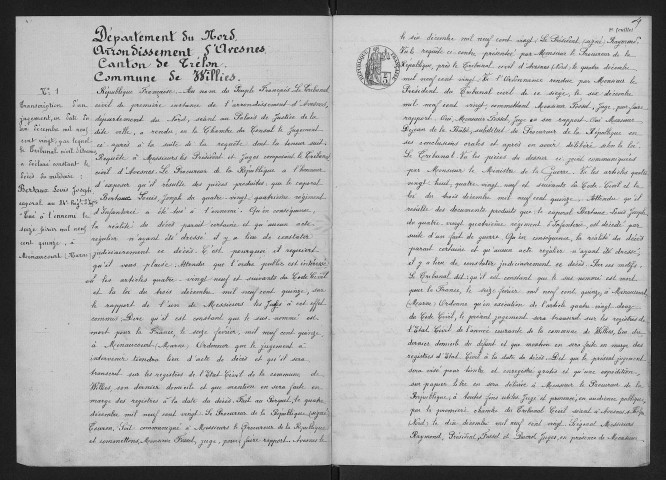 Département du Nord
Arrondissement d'Avesnes
Canton de Trélon
Commune de Willies
N° 1
Transcription d'un
jugement, en date du
dix décembre mil neuf
cent vingt, par lequel
le Tribunal civil d'Avesnes
a déclaré constant le
décès du militaire
Bertaux Louis Joseph,
caporal au 84e Régt d'Inf.
Tué à l'ennemi le
seize février mil neuf
cent quinze, à
Minaucourt (Marne)
République Française. Au nom du Peuple Français Le Tribunal
civil de première instance de l'arrondissement d'Avesnes,
département du Nord, séant au Palais de Justice de la
dite ville, a rendu, en la Chambre du Conseil le Jugement
ci après à la suite de la requête dont la teneur suit.
Requête à Messieurs les Président et Juges composant le Tribunal
civil d'Avesnes. Le Procureur de la République a l'honneur
d'exposer qu'il résulte des pièces produites que le caporal
Bertaux Louis Joseph du quatre vingt quatrième régiment
d'Infanterie a été tué à l'ennemi. Qu'en conséquence,
la réalité du décès parait certaine et qu'aucun acte
régulier n'ayant été dressé il y a lieu de constater
judiciairement ce décès. C'est pourquoi il requiert
qu'il vous plaise. Attendu que l'ordre public est intéressé
Vu les articles quatre vingt neuf et suivants du Code Civil
et la loi du trois décembre mil neuf cent quinze, sur
le rapport de l'un de Messieurs les Juges à cet effet
commis. Dire qu'il est constant que le sus nommé est
mort pour la France, le seize février mil neuf cent quinze
à Minaucourt (Marne) Ordonner que le jugement à
intervenir tiendra lieu d'acte de décès et qu'il sera
transcrit sur les registres de l'Etat Civil de la commune de
Willies, son dernier domicile et que mention en sera faite en
marge des registres à la date du décès. Fait au Parquet, le quatre
décembre mil neuf cent vingt. Le Procureur de la République (signé)
Soit communiqué à Monsieur le Procureur de la République
et commettons, Monsieur Possel, juge, pour faire rapport. Avesnes le
1er feuillet
le six décembre mil neuf cent vingt. Le Président, signé: Raymond.
Vu la requête ci contre présentée par Monsieur le Procureur de la
République, près le Tribunal civil d'Avesnes (Nord) le quatre décembre
mil neuf cent vingt. Vu l'Ordonnance rendue par Monsieur le
Président du Tribunal civil de ce siège, le six décembre
mil neuf cent vingt, commettant Monsieur Possel, Juge, pour faire
rapport. Ouï Monsieur Possel, Juge en son rapport. Ouï Monsieur
substitut du Procureur de la République en
ses conclusions orales et après en avoir délibéré selon la loi.
Le Tribunal. Vu les pièces du dossier et joint communiquées
par Monsieur le Ministre de la Guerre. Vu les articles quatre
vingt huit, quatre vingt neuf et suivants du Code Civil et la
loi du trois décembre mil neuf cent quinze. Attendu qu'il
résulte des documents produits que le caporal Bertaux Louis Joseph
du quatre vingt quatrième régiment d'Infanterie, est décédé par
suite d'un fait de guerre. Qu'en conséquence, la réalité du décès
parait certaine et qu'aucun acte régulier n'ayant été dressé,
il y a lieu de constater judiciairement ce décès. Par ces motifs.
Le Tribunal dit qu'il est constant que le sus nommé est mort
pour la France, le seize février mil neuf cent quinze, à Minaucourt
(Marne) Ordonne qu'en exécution de l'article quatre vingt douze
du Code Civil, le présent jugement sera transcrit sur les registres de
l'Etat Civil de l'année courante de la commune de Willies, lieu du
dernier domicile du défunt et que mention en sera faite en marge des
registres d'Etat Civil à la date du décès. Dit que le présent jugement
sera visé timbre et enregistré gratis et qu'une expédition
sur papier libre en sera délivrée à Monsieur le Procureur de
la République, à toutes fins utiles. Jugé et prononcé en audience publique
par la première chambre du Tribunal Civil séant à Avesnes
Nord, le dix décembre mil neuf cent vingt. Siégeant Messieurs
Raymond, Président, Possel et Juges, en présence de Monsieur